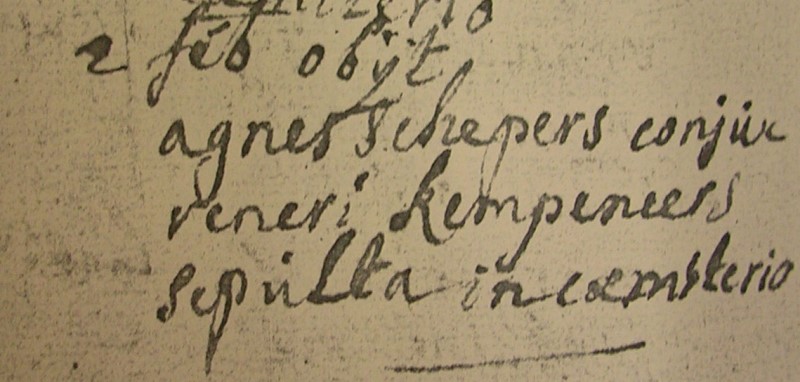 2 feb obijt
agnes schepers conjux
reneri kempeneers
sepulta in cœmsterio